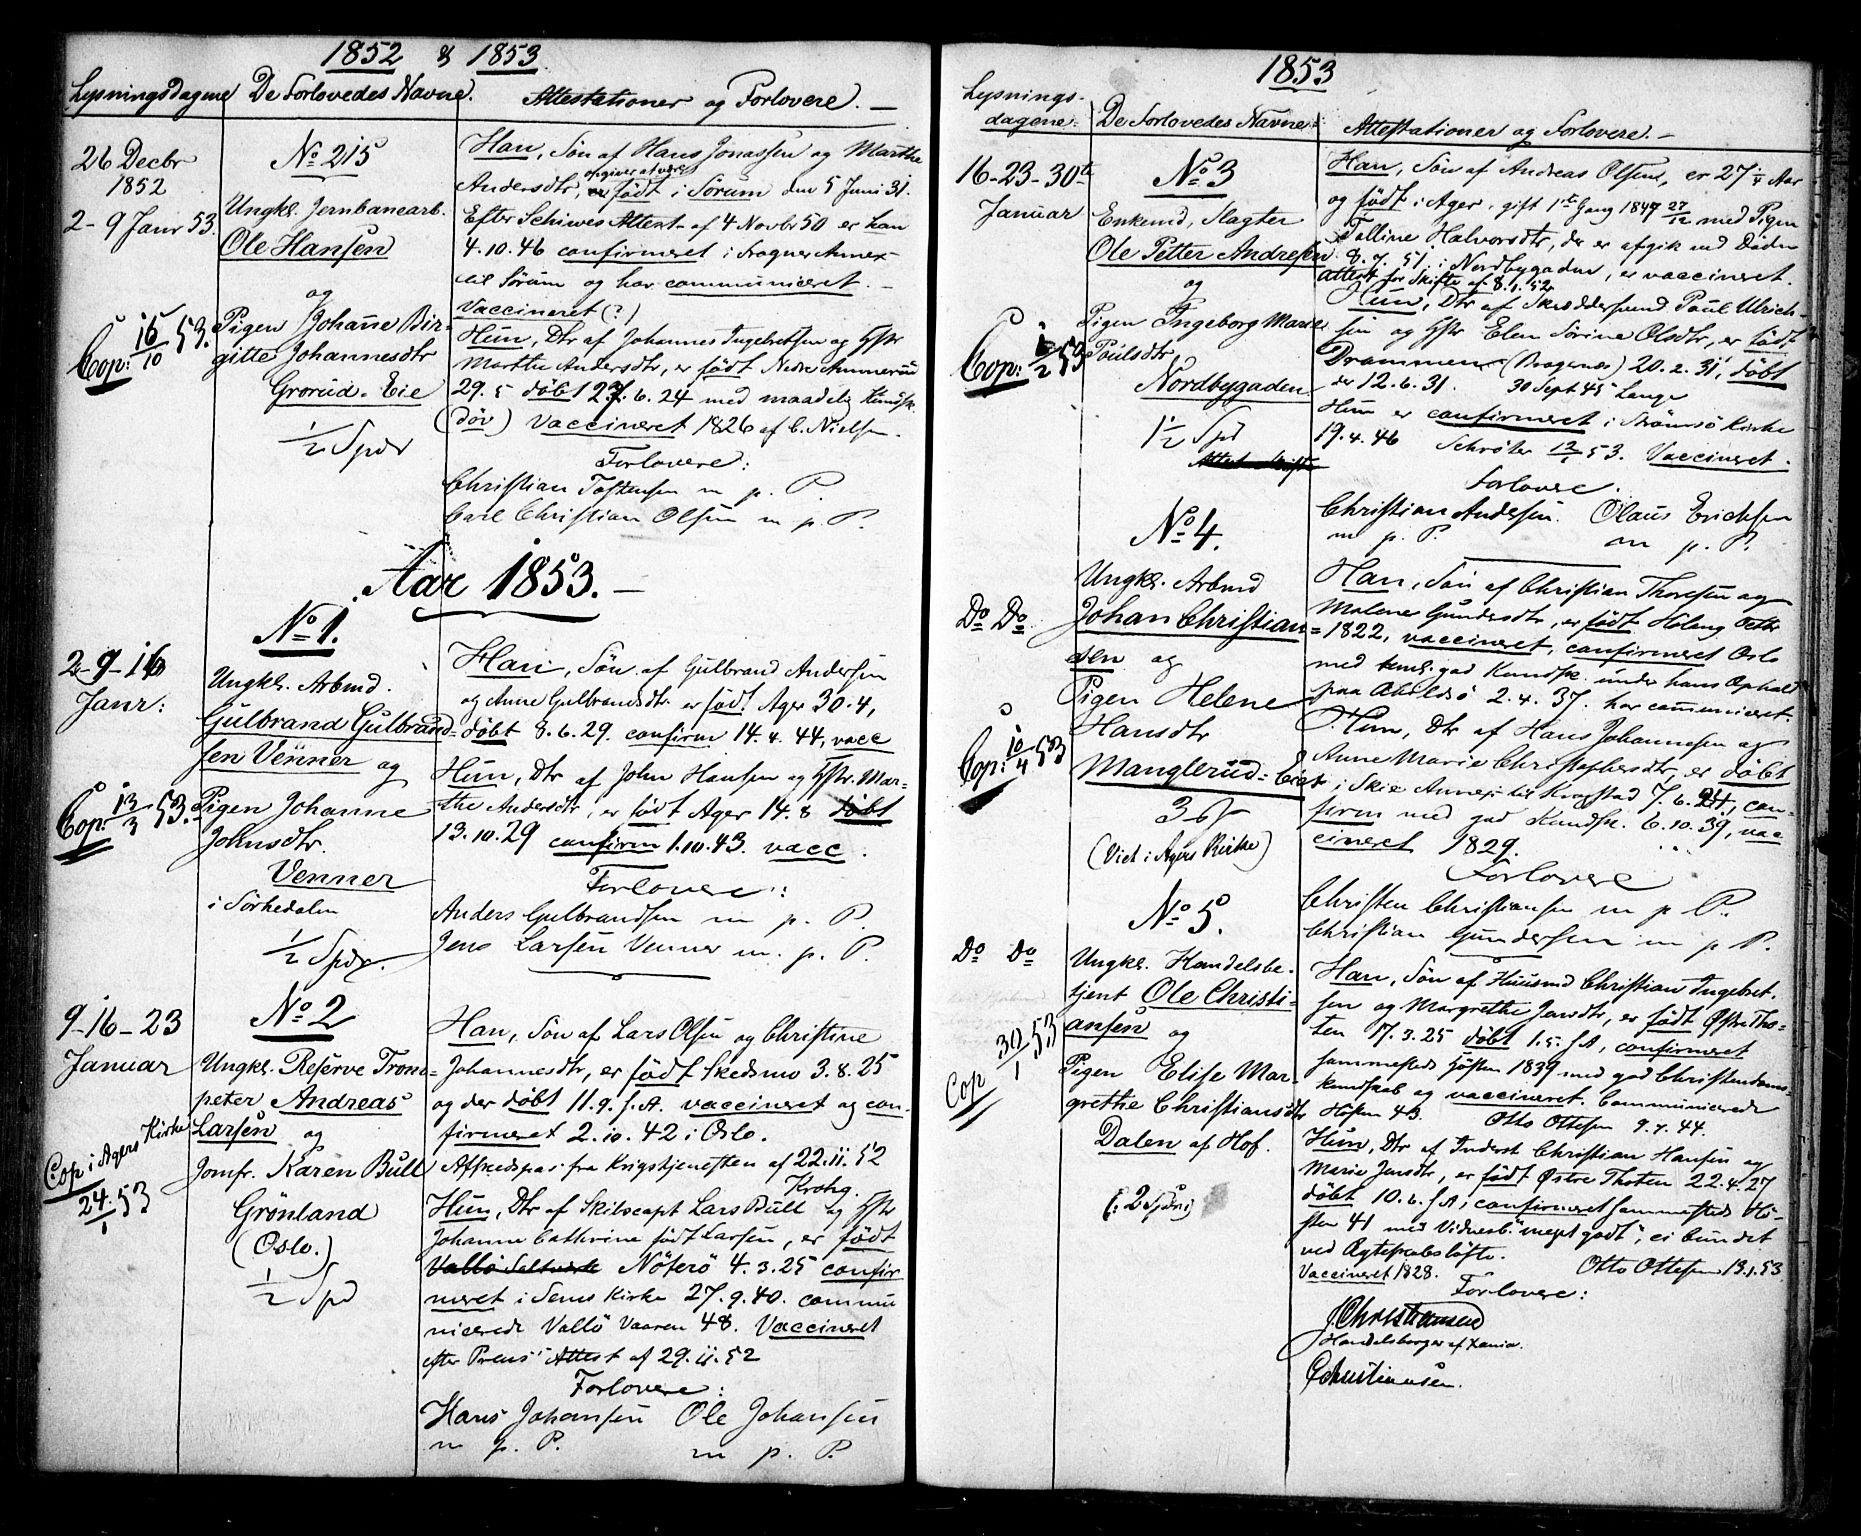 1852 & 1853
Lysningsdagene De Forlovedes Navne. Attestationer og Forlovere. —
26 Decbr
1852
2-9 Janr 53.
Cop: 16/10 53.
No 215
Ungkl. Jernbanearb.
Ole Hansen
og
Pigen Johanne Bir-
gitte Johannesdtr
Grorud-Eie
1/2 Spdr
Han, Søn af Hans Jonassen og Marthe
opgiver at være
Andersdtr, født i Sørum den 5 Juni 31.
Efter Schiwes Attest af 4 Novbr 50 er han
4.10.46 confirmeret i Frogner Annex
til Sørum og har communiceret. —
Vaccineret (?)
Hun, Dtr af Johannes Ingebretsen og Hstr
Marthe Andersdtr, er født Nedre Ammerud
29.5 döbt 27.6.24 med maadelig Kundsk.
(döv) Vaccineret 1826 af C. Nielsen.
Forlovere:
Christian Tostensen m. p. P.
Carl Christian Olsen m. p. P.
Aar 1853. —
2-9-16
Janr:
Cop: 13/3 53.
No 1.
Ungkl. Arbmd.
Gulbrand Gulbrand-
sen Venner og
Pigen Johanne
Johnsdtr.
Venner
i Sørkedalen
1/2 Spdr.
Han, Søn af Gulbrand Andersen
og Anne Gulbrandsdtr. er født Ager 30.4,
döbt 8.6.29. confirm 14.4.44, vacc
Hun, Dtr af John Hansen og Hstr. Mar-
the Andersdtr, er født Ager 14.8 döbt
13.10.29 confirm 1.10.43. vacc.
Forlovere:
Anders Gulbrandsen m. p. P.
Jens Larsen Venner m. p. P.
9-16-23
Januar
Cop i Agers Kirke
24/1 53
No 2
Ungkl. Reserve Trom-
peter Andreas
Larsen og
Jomfr. Karen Bull
Grönland
(Oslo.)
1/2 Spd
Han, Søn af Lars Olsen og Christine
Johannesdtr, er født Skedsmo 3.8.25
og der döbt 11.9. s.A. vaccineret og con-
firmeret 2.10.42 i Oslo.
Afskedspas fra Krigstjenesten af 22.11.52
Krohg.
Hun, Dtr af Skibscapt Lars Bull og Hstr
Johanne Cathrine født Larsen, er født
Vallö Saltværk Nöterö 4.3.25 confir
meret i Sems Kirke 27.9.40. commu
nicerede Vallö Vaaren 48. Vaccineret
efter Preus' Attest af 29.11.52
Forlovere:
Hans Johansen Ole Johansen
m. p. P. m. p. P.
1853
Lysnings-
dagene. De Forlovedes Navne. Attestationer og Forlovere. —
16-23-30te
Januar
Cop: 1/2 53
No 3
Enkemd, Slagter
Ole Petter Andresen
og
Pigen Ingeborg Marie
Paulsdtr,
Nordbygaden
1 1/2 Spd
Han, Søn af Andreas Olsen, er 27 1/4 Aar
og født i Ager, gift 1ste Gang 1847 27/12 med Pigen
Talline Halvorsdtr, der er afgik ved Døden
8.7.51. i Nordbygaden, er vaccineret.
attest for Skifte af 8.1.52
Hun, Dtr af Skræddersvend Paul Ulrich-
sen og Hstr Elen Sörine Olsdtr, er født
Drammen (Bragenes) 20.2.31, döbt
der 12.6.31. 30 Sept 45 Lange
Hun er confirmeret i Strömsö Kirke
19.4.46 Schröter 12/1 53. Vaccineret.
Forlovere.
Christian Andersen. Olaus Erichsen
m. p. P. m. p. P.
Do Do.
Cop: 10/4 53
No 4.
Ungkl. Arbmd
Johan Christian-
sen og
Pigen Helene
Hansdtr
Manglerud-Eiet
3 Sp
(Viet i Agers Kirke)
Han, Søn af Christian Thoresen og
Malene Gundersdtr, er født
1822, vaccineret, confirmeret Oslo
med god Kundsk. under hans Ophold
paa Abildsö 2.4.37. har communiceret.
Hun, Dtr af Hans Johannesen og
Anne Marie Christophersdtr, er döbt
i Skie Annex til Kragstad 7.6.24, con-
firm med god Kundsk. 6.10.39, vac
cineret 1829.
Forlovere
Christen Christiansen m. p. P.
Christian Gundersen m. p. P.
Do Do
Cop 30/1 53
No 5.
Ungkl. Handelsbe-
tjent Ole Christi-
ansen og
Pigen Elise Mar-
grethe Christiansdtr
Dalen af Hof.
(: 2 Spdr:)
Han, Søn af Huusmd Christian Ingebret-
sen og Margrethe Jansdtr, er født Østre Tho-
ten 17.3.25 döbt 1.5. s.A, confirmeret
sammesteds Hösten 1839 med god Christendoms-
kundskab og vaccineret. Communicerede
Hösten 43. Otto Ottesen 9.7.44.
Hun, Dtr af Inderst Christian Hansen og
Marie Jensdtr, er født Østre Thoten 22.4.27
döbt 10.6. s.A, confirmeret sammesteds Hö-
sten 41 med Vidnesb. "meget godt", ei bundet
ved Ægteskabslöfte.
Vaccineret 1828. Otto Ottesen 13.1.53
Forlovere:
J. Christiansen
Handelsborger af Xania.
E Christiansen.